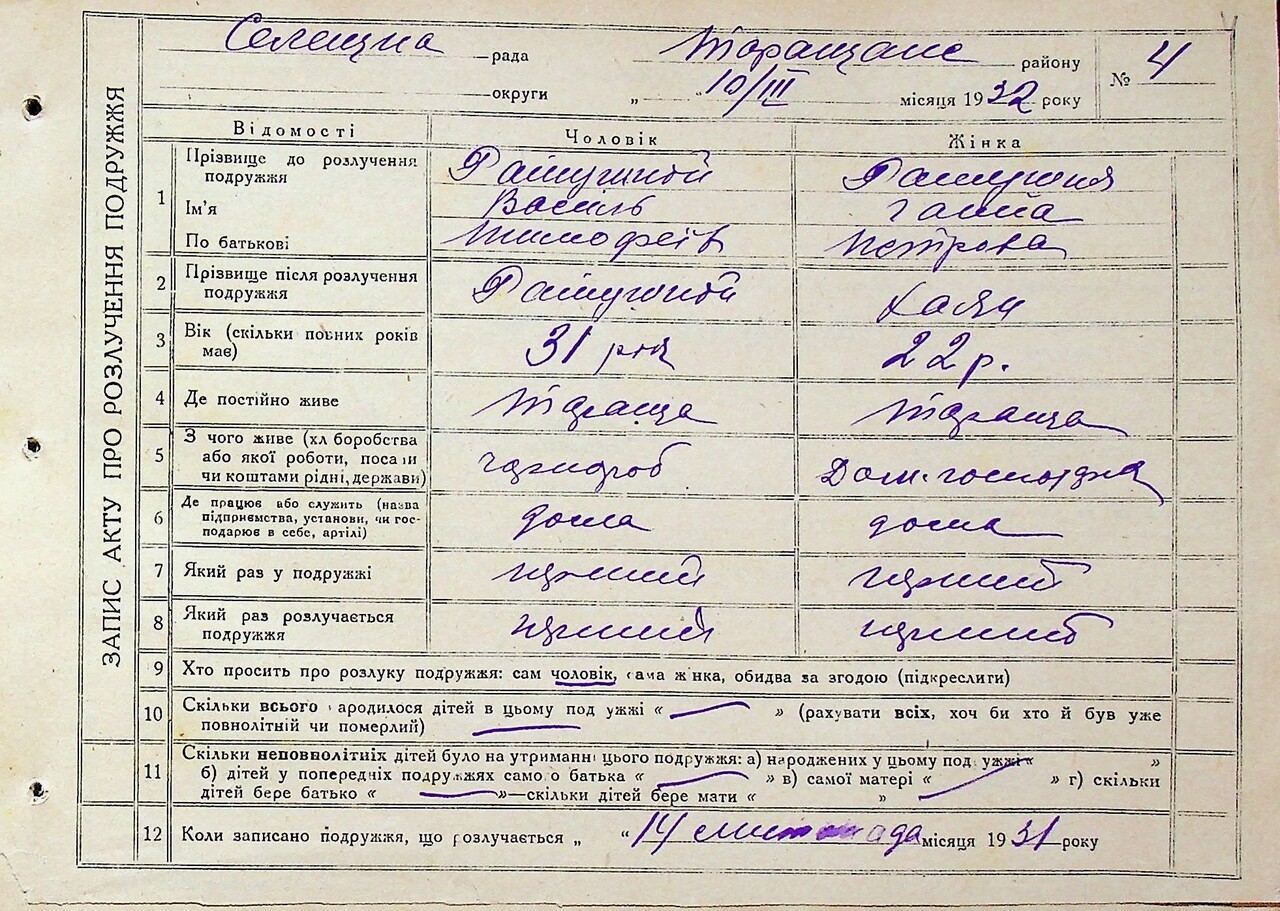 ЗАПИС АКТУ ПРО РОЗЛУЧЕННЯ ПОДРУЖЖЯ
Селищна рада Таращанс району № 4
округи „ 10/III " місяця 1932 року
Відомості Чоловік Жінка
1 Прізвище до розлучення подружжя
Ім'я Василь Ганна
По батькові Тимофеїв Петрова
2 Прізвище після розлучення подружжя
3 Вік (скільки повних років має) 31 рік 22 р.
4 Де постійно живе Тараща Тараща
5 З чого живе (хл боробства або якої роботи, посади чи коштами рідні, держави) Дом.
6 Де працює або служить (назва підприємства, установи, чи господарює в себе, артілі) дома дома
7 Який раз у подружжі перший перший
8 Який раз розлучається подружжя перший перший
9 Хто просить про розлуку подружжя: сам чоловік, сама жінка, обидва за згодою (підкреслити)
10 Скільки всього народилося дітей в цьому под ужжі « — » (рахувати всіх, хоч би хто й був уже
повнолітній чи померлий) —
11 Скільки неповнолітніх дітей було на утриманні цього подружжя: а) народжених у цьому под ужжі « — »
б) дітей у попередніх подружжях само о батька « — » в) самої матері « — » г) скільки
дітей бере батько « — »—скільки дітей бере мати « »
12 Коли записано подружжя, що розлучається „ " 14 листопада місяця 1931 року